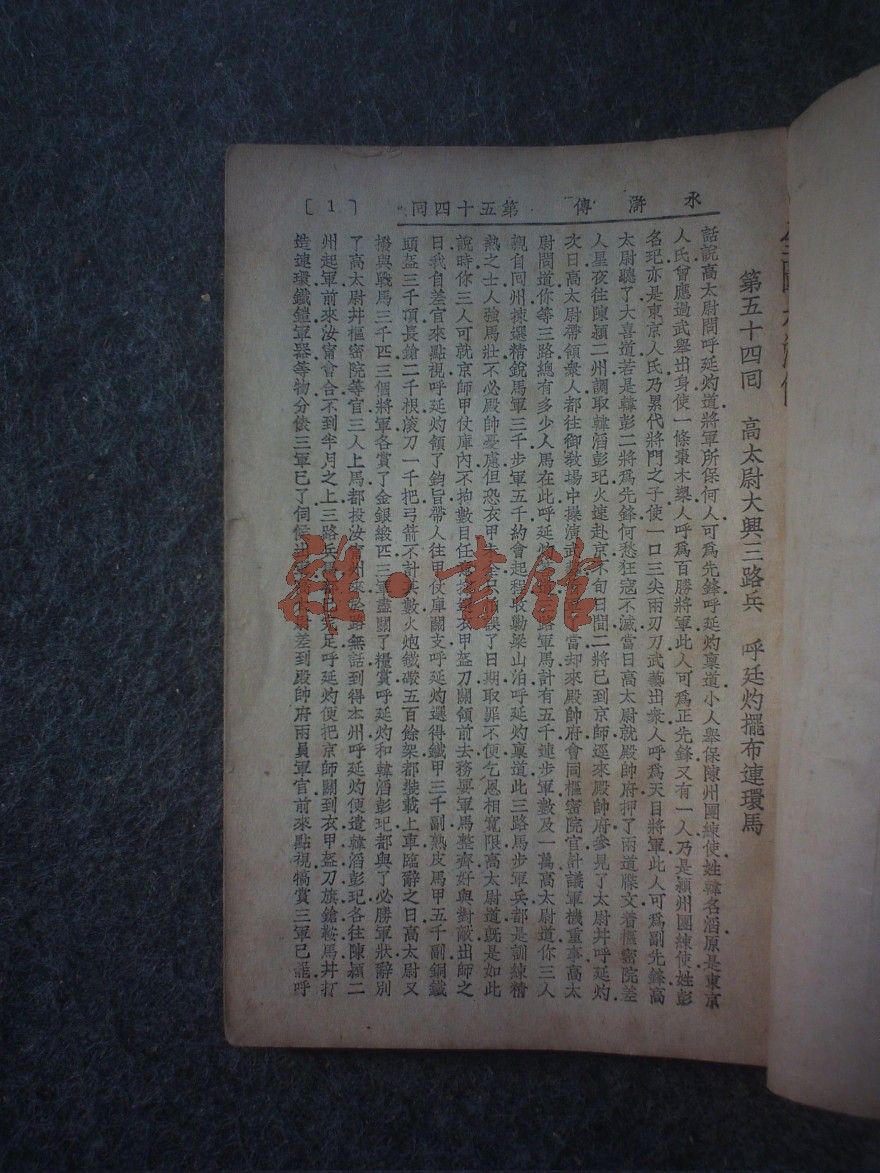 水滸傳 第五十四回 〔1〕
第五十四回 高太尉大興三路兵 呼延灼擺布連環馬
話說高太尉問呼延灼道將軍所保何人可爲先鋒呼延灼稟道小人舉保陳州團練使姓韓名滔原是東京
人氏曾應過武舉出身使一條棗木槊人呼爲百勝將軍此人可爲正先鋒又有一人乃是潁州團練使姓彭
名玘亦是東京人氏乃累代將門之子使一口三尖兩刃刀武藝出衆人呼爲天目將軍此人可爲副先鋒高
太尉聽了大喜道若是韓彭二將爲先鋒何愁狂寇不滅當日高太尉就殿帥府押了兩道牒文着樞密院差
人星夜往陳潁二州調取韓滔彭玘火速赴京不旬日間二將已到京師逕來殿帥府參見了太尉并呼延灼
次日高太尉帶領衆人都往御教場中操演武當却來殿帥府會同樞密院官計議軍機重事高太
尉問道你等三路總有多少人馬在此呼延灼路軍馬計有五千連步軍數及一萬高太尉道你三人
親自回州揀選精銳馬軍三千步軍五千約會起程收勦梁山泊呼延灼稟道此三路馬步軍兵都是訓練精
熟之士人強馬壯不必殿帥憂慮但恐衣甲未全只誤了日期取罪不便乞恩相寬限高太尉道旣是如此
說時你三人可就京師甲仗庫內不拘數目任衣甲盔刀關領前去務要軍馬整齊好與對敵出師之
日我自差官來點視呼延灼領了鈞旨帶人往甲仗庫關支呼延灼選得鐵甲三千副熟皮馬甲五千副銅鐵
頭盔三千頂長鎗二千根滾刀一千把弓箭不計其數火炮鐵礮五百餘架都裝載上車臨辭之日高太尉又
撥與戰馬三千匹三個將軍各賞了金銀緞匹三軍盡關了糧賞呼延灼和韓滔彭玘都與了必勝軍狀辭別
了高太尉并樞密院等官三人上馬都投汝甯州來於路無話到得本州呼延灼便遣韓滔彭玘各往陳潁二
州起軍前來汝甯會合不到半月之上三路兵馬都已完足呼延灼便把京師關到衣甲盔刀旗鎗鞍馬并打
造連環鐵鎧軍器等物分俵三軍已了伺候出軍差到殿帥府兩員軍官前來點視犒賞三軍已罷呼
雜·書館